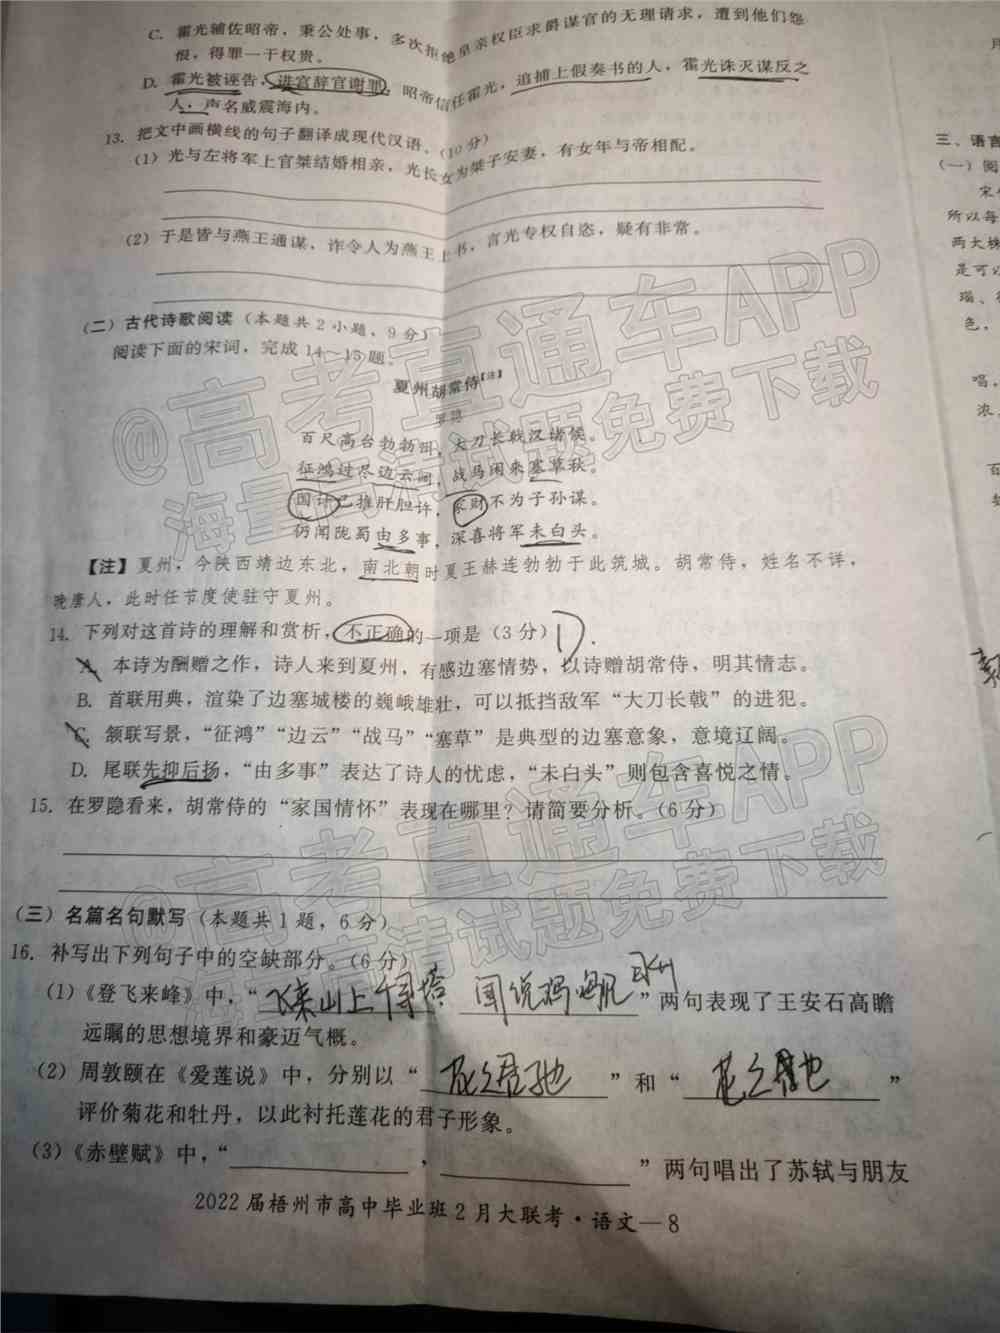 C. 霍光辅佐昭帝，秉公处事，多次拒绝皇亲权臣求爵谋官的无理请求，遭到他们怨
恨，得罪一干权贵。
D. 霍光被诬告，进宫辞官谢罪，昭帝信任霍光，追捕上假奏书的人，霍光诛灭谋反之
人，声名威震海内。
13. 把文中画横线的句子翻译成现代汉语。(10分)
(1) 光与左将军上官桀结婚相亲，光长女为桀子安妻，有女年与帝相配。
(2) 于是皆与燕王通谋，诈令人为燕王上书，言光专权自恣，疑有非常。
(二) 古代诗歌阅读 (本题共2小题，9分)
阅读下面的宋词，完成14～15题。
夏州胡常侍【注】
罗隐
百尺高台勃勃州，大刀长戟汉诸侯。
征鸿过尽边云阔，战马闲来塞草秋。
国计已推肝胆许，家财不为子孙谋。
仍闻陇蜀由多事，深喜将军未白头。
【注】夏州，今陕西靖边东北，南北朝时夏王赫连勃勃于此筑城。胡常侍，姓名不详，
晚唐人，此时任节度使驻守夏州。
14. 下列对这首诗的理解和赏析，不正确的一项是 (3分) D.
A. 本诗为酬赠之作，诗人来到夏州，有感边塞情势，以诗赠胡常侍，明其情志。
B. 首联用典，渲染了边塞城楼的巍峨雄壮，可以抵挡敌军“大刀长戟”的进犯。
C. 颔联写景，“征鸿”“边云”“战马”“塞草”是典型的边塞意象，意境辽阔。
D. 尾联先抑后扬，“由多事”表达了诗人的忧虑，“未白头”则包含喜悦之情。
15. 在罗隐看来，胡常侍的“家国情怀”表现在哪里？请简要分析。(6分)
(三) 名篇名句默写 (本题共1题，6分)
16. 补写出下列句子中的空缺部分。(6分)
(1)《登飞来峰》中，“飞来山上千寻塔 闻说鸡鸣见日升”两句表现了王安石高瞻
远瞩的思想境界和豪迈气概。
(2) 周敦颐在《爱莲说》中，分别以“ ”和“ ”
评价菊花和牡丹，以此衬托莲花的君子形象。
(3)《赤壁赋》中，“ ， ”两句唱出了苏轼与朋友
2022届梧州市高中毕业班2月大联考·语文—8
三、语言
(一) 阅
宋
所以每
两大株
是可以
瑙、
色，
唱，
浓，
@高考直通车APP
海量高清试题免费下载
@高考直通车APP
海量高清试题免费下载